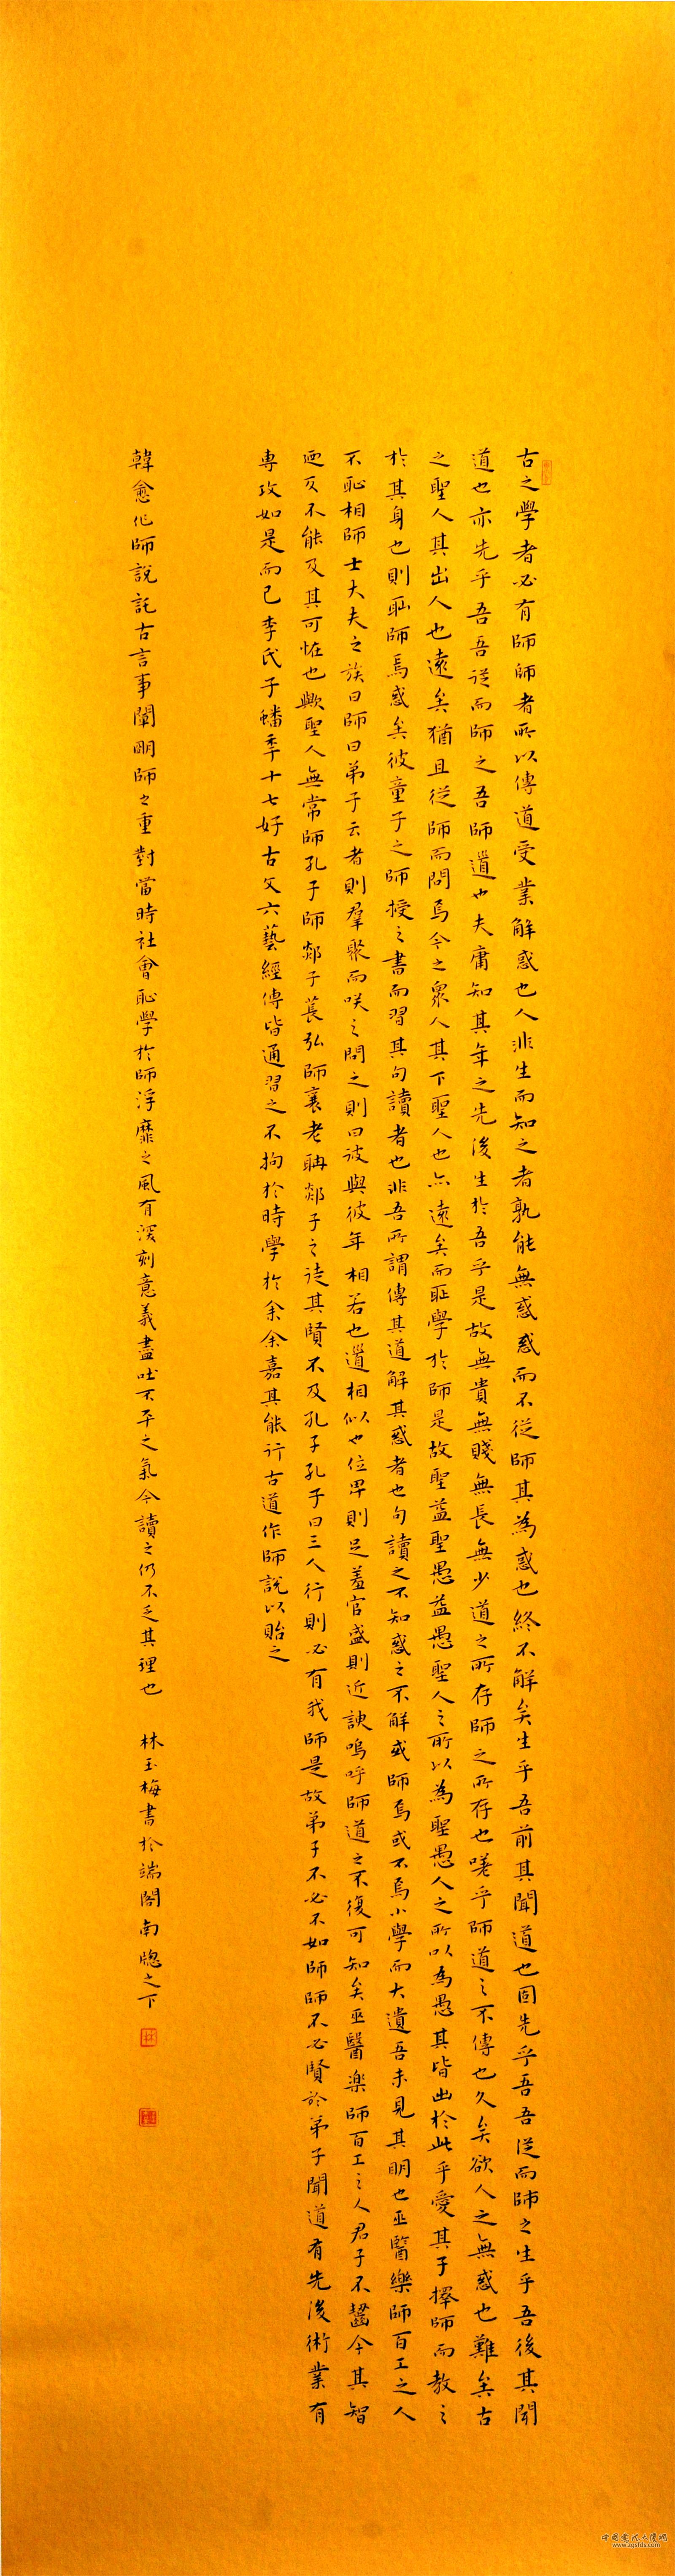 古之學者必有師師者所以傳道受業解惑也人非生而知之者孰能無惑惑而不從師其為惑也終不解矣生乎吾前其聞道也固先乎吾吾從而師之生乎吾後其聞
道也亦先乎吾吾從而師之吾師道也夫庸知其年之先後生於吾乎是故無貴無賤無長無少道之所存師之所存也嗟乎師道之不傳也久矣欲人之無惑也難矣古
之聖人其出人也遠矣猶且從師而問焉今之眾人其下聖人也亦遠矣而恥學於師是故聖益聖愚益愚聖人之所以為聖愚人之所以為愚其皆出於此乎愛其子擇師而教之
於其身也則恥師焉惑矣彼童子之師授之書而習其句讀者也非吾所謂傳其道解其惑者也句讀之不知惑之不解或師焉或不焉小學而大遺吾未見其明也巫醫樂師百工之人
不恥相師士大夫之族曰師曰弟子云者則羣聚而咲之問之則曰彼與彼年相若也道相似也位卑則足羞官盛則近諛嗚呼師道之不復可知矣巫醫樂師百工之人君子不齒今其智
迺反不能及其可怪也歟聖人無常師孔子師郯子萇弘師襄老聃郯子之徒其賢不及孔子孔子曰三人行則必有我師是故弟子不必不如師師不必賢於弟子聞道有先後術業有
專攻如是而已李氏子蟠年十七好古文六藝經傳皆通習之不拘於時學於余余嘉其能行古道作師說以貽之
韓愈作師說託古言事闡明師之重對當時社會恥學於師浮靡之風有深刻意義盡吐不平之氣今讀之仍不乏其理也 林玉梅書於端閣南牕之下
中國書法大厦网
www.zgsfds.com